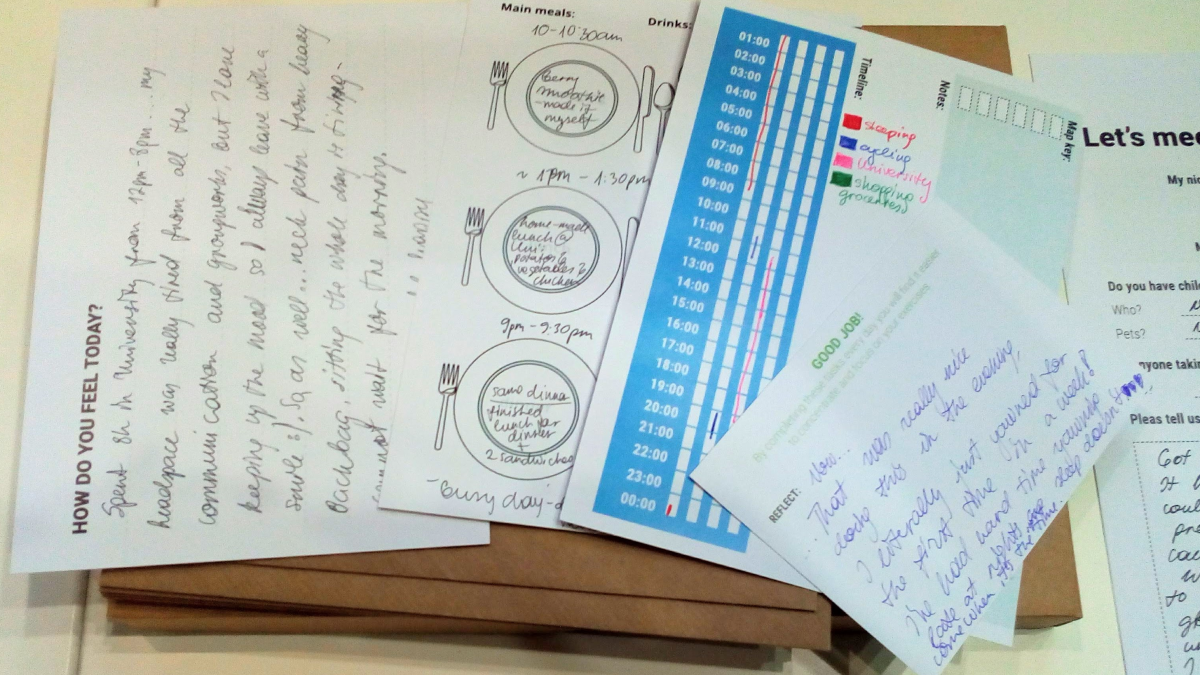 HOW DO YOU FEEL TODAY?
Spent 8h in University from 12pm-8pm... my
headspace was really tired from all the
communication and groupworks, but I love
keeping up the mood so I always leave with a
smile :). So, as well... neck pain from heavy
backbag, sitting the whole day it
cannot wait for the morning.
Main meals:
Drinks:
10-10:30am
Berry
smoothie
-made it
myself
~ 1pm - 1:30pm
home-made
lunch @
Uni:
potatoes &
vegetables &
chicken
9pm - 9:30pm
same dinner
finished
lunch for
dinner
+
2 sandwiches
"Busy day"
01:00
02:00
03:00
04:00
05:00
06:00
07:00
08:00
09:00
10:00
11:00
12:00
13:00
14:00
15:00
16:00
17:00
18:00
19:00
20:00
21:00
22:00
23:00
00:00
Timeline:
sleeping
cycling
University
shopping
groceries
Notes:
Map key:
GOOD JOB!
By completing these tasks every day you will find it easier
to concentrate and focus on your
REFLECT:
Wow...
... That was really nice
doing this in the evening,
I literally just yawned for
the first time in a week!
I've had hard time yawning
at nights
sleep doesn't
come when it's the time.
Let's mee
My nic
Do you have chil
Who?
Pets?
nyone takin
Pleas tell us
Got
It
coul
pr
to